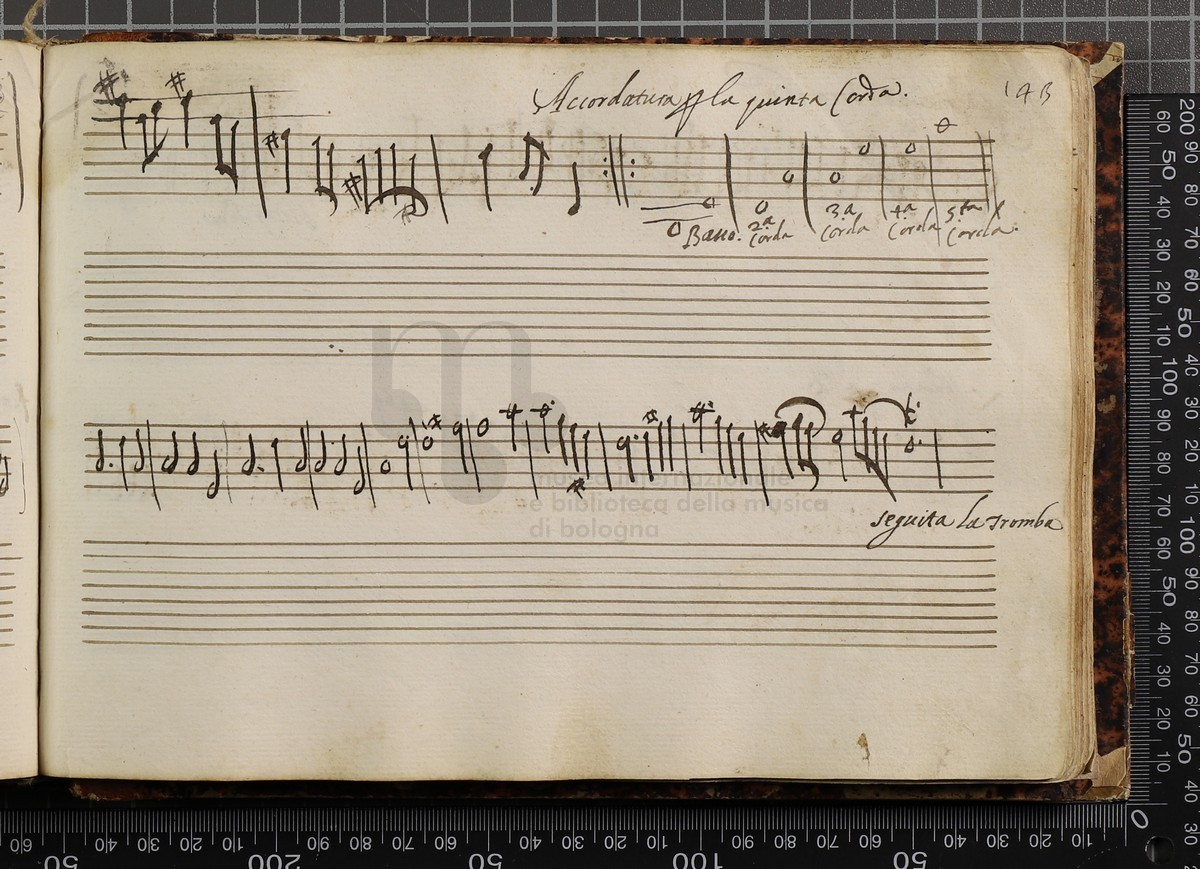 Accordatura p la quinta Corda.
143
Basso. 2.a Corda 3.a Corda 4.a Corda 5.ta Corda.
museo internazionale
e biblioteca della musica
di bologna
seguita la Tromba